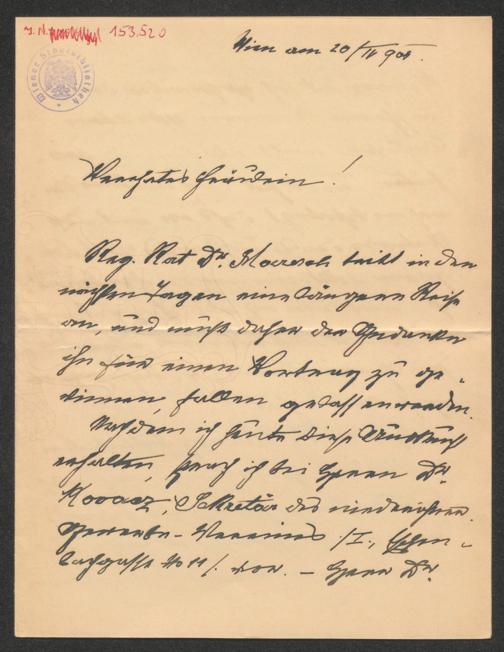 J. N. 153.520
Wiener Stadtbibliothek
Wien am 20/IV 901.
Verehrtes Fräulein!
Reg. Rat Dr. Maresch tritt in den
nächsten Tagen eine längere Reise
an, und muß daher der Gedanke
ihn für einen Vortrag zu ge-
winnen, fallen gelassen werden.
Nachdem ich heute diese Auskunft
erhalten, sprach ich bei Herrn Dr.
Kovacz, Sekretär des niederösterr.
Gewerbe-Vereines /I., Eschen-
bachgasse No 11/. vor. – Herr Dr.